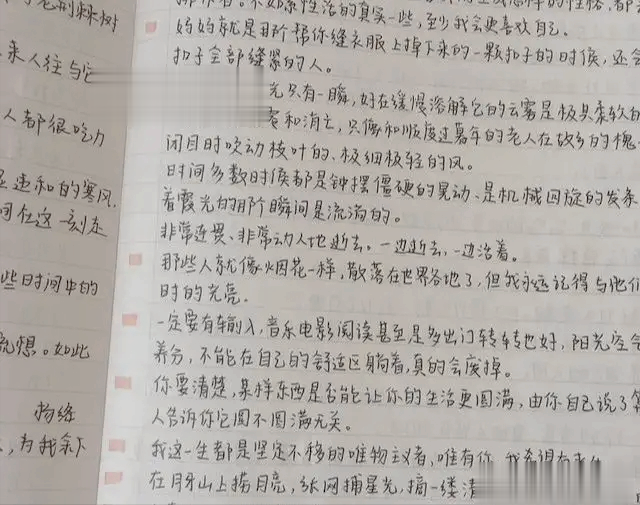 老刑麻树
来人往与它
人都很吃力
违和的寒风,
同在这一刻走
些时间中的
流想。如此
扬练
,为我余下
不如索性活的真实一些,至少我会更喜欢自己。
妈妈就是那个帮你缝衣服上掉下来的一颗扣子的时候,还会
扣子全部缝紧的人。
光只有一瞬,好在缓慢溶解它的云雾是极具柔软的
和消亡,只像和顺度过暮年的老人在故乡的槐
闭目时吹动枝叶的、极细极轻的风。
时间多数时候都是钟摆僵硬的晃动、是机械回旋的发条
着霞光的那个瞬间是流淌的。
非常连贯、非常动人地逝去。一边逝去,一边活着。
那些人就像烟花一样,散落在世界各地了,但我永远记得与他们
时的光亮。
一定要有输入,音乐电影阅读甚至是多出门转转也好,阳光空
养分,不能在自己的舒适区躺着,真的会废掉。
你要清楚,某样东西是否能让你的生活更圆满,由你自己说了算
人告诉你它圆不圆满无关。
我这一生都是坚定不移的唯物主义者,唯有你,我希望有来生
在月牙山上捞月亮,张网捕星光,摘一缕清